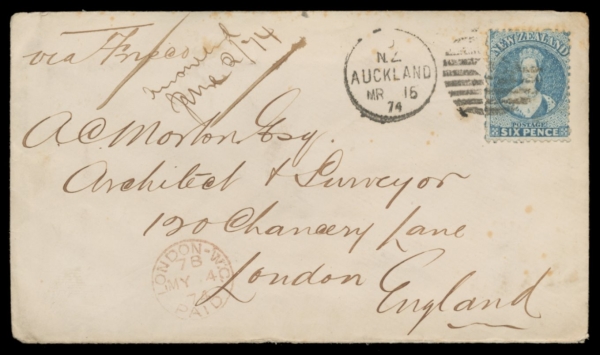 via Frisco
answered
June 2/74
N.Z
AUCKLAND
MR 16
74
NEW ZEALAND
POSTAGE
SIX PENCE
A C Morton Esq.
Architect & Surveyor
120 Chancery Lane
London
England
LONDON-W.C
78
MY 4
74
PAID